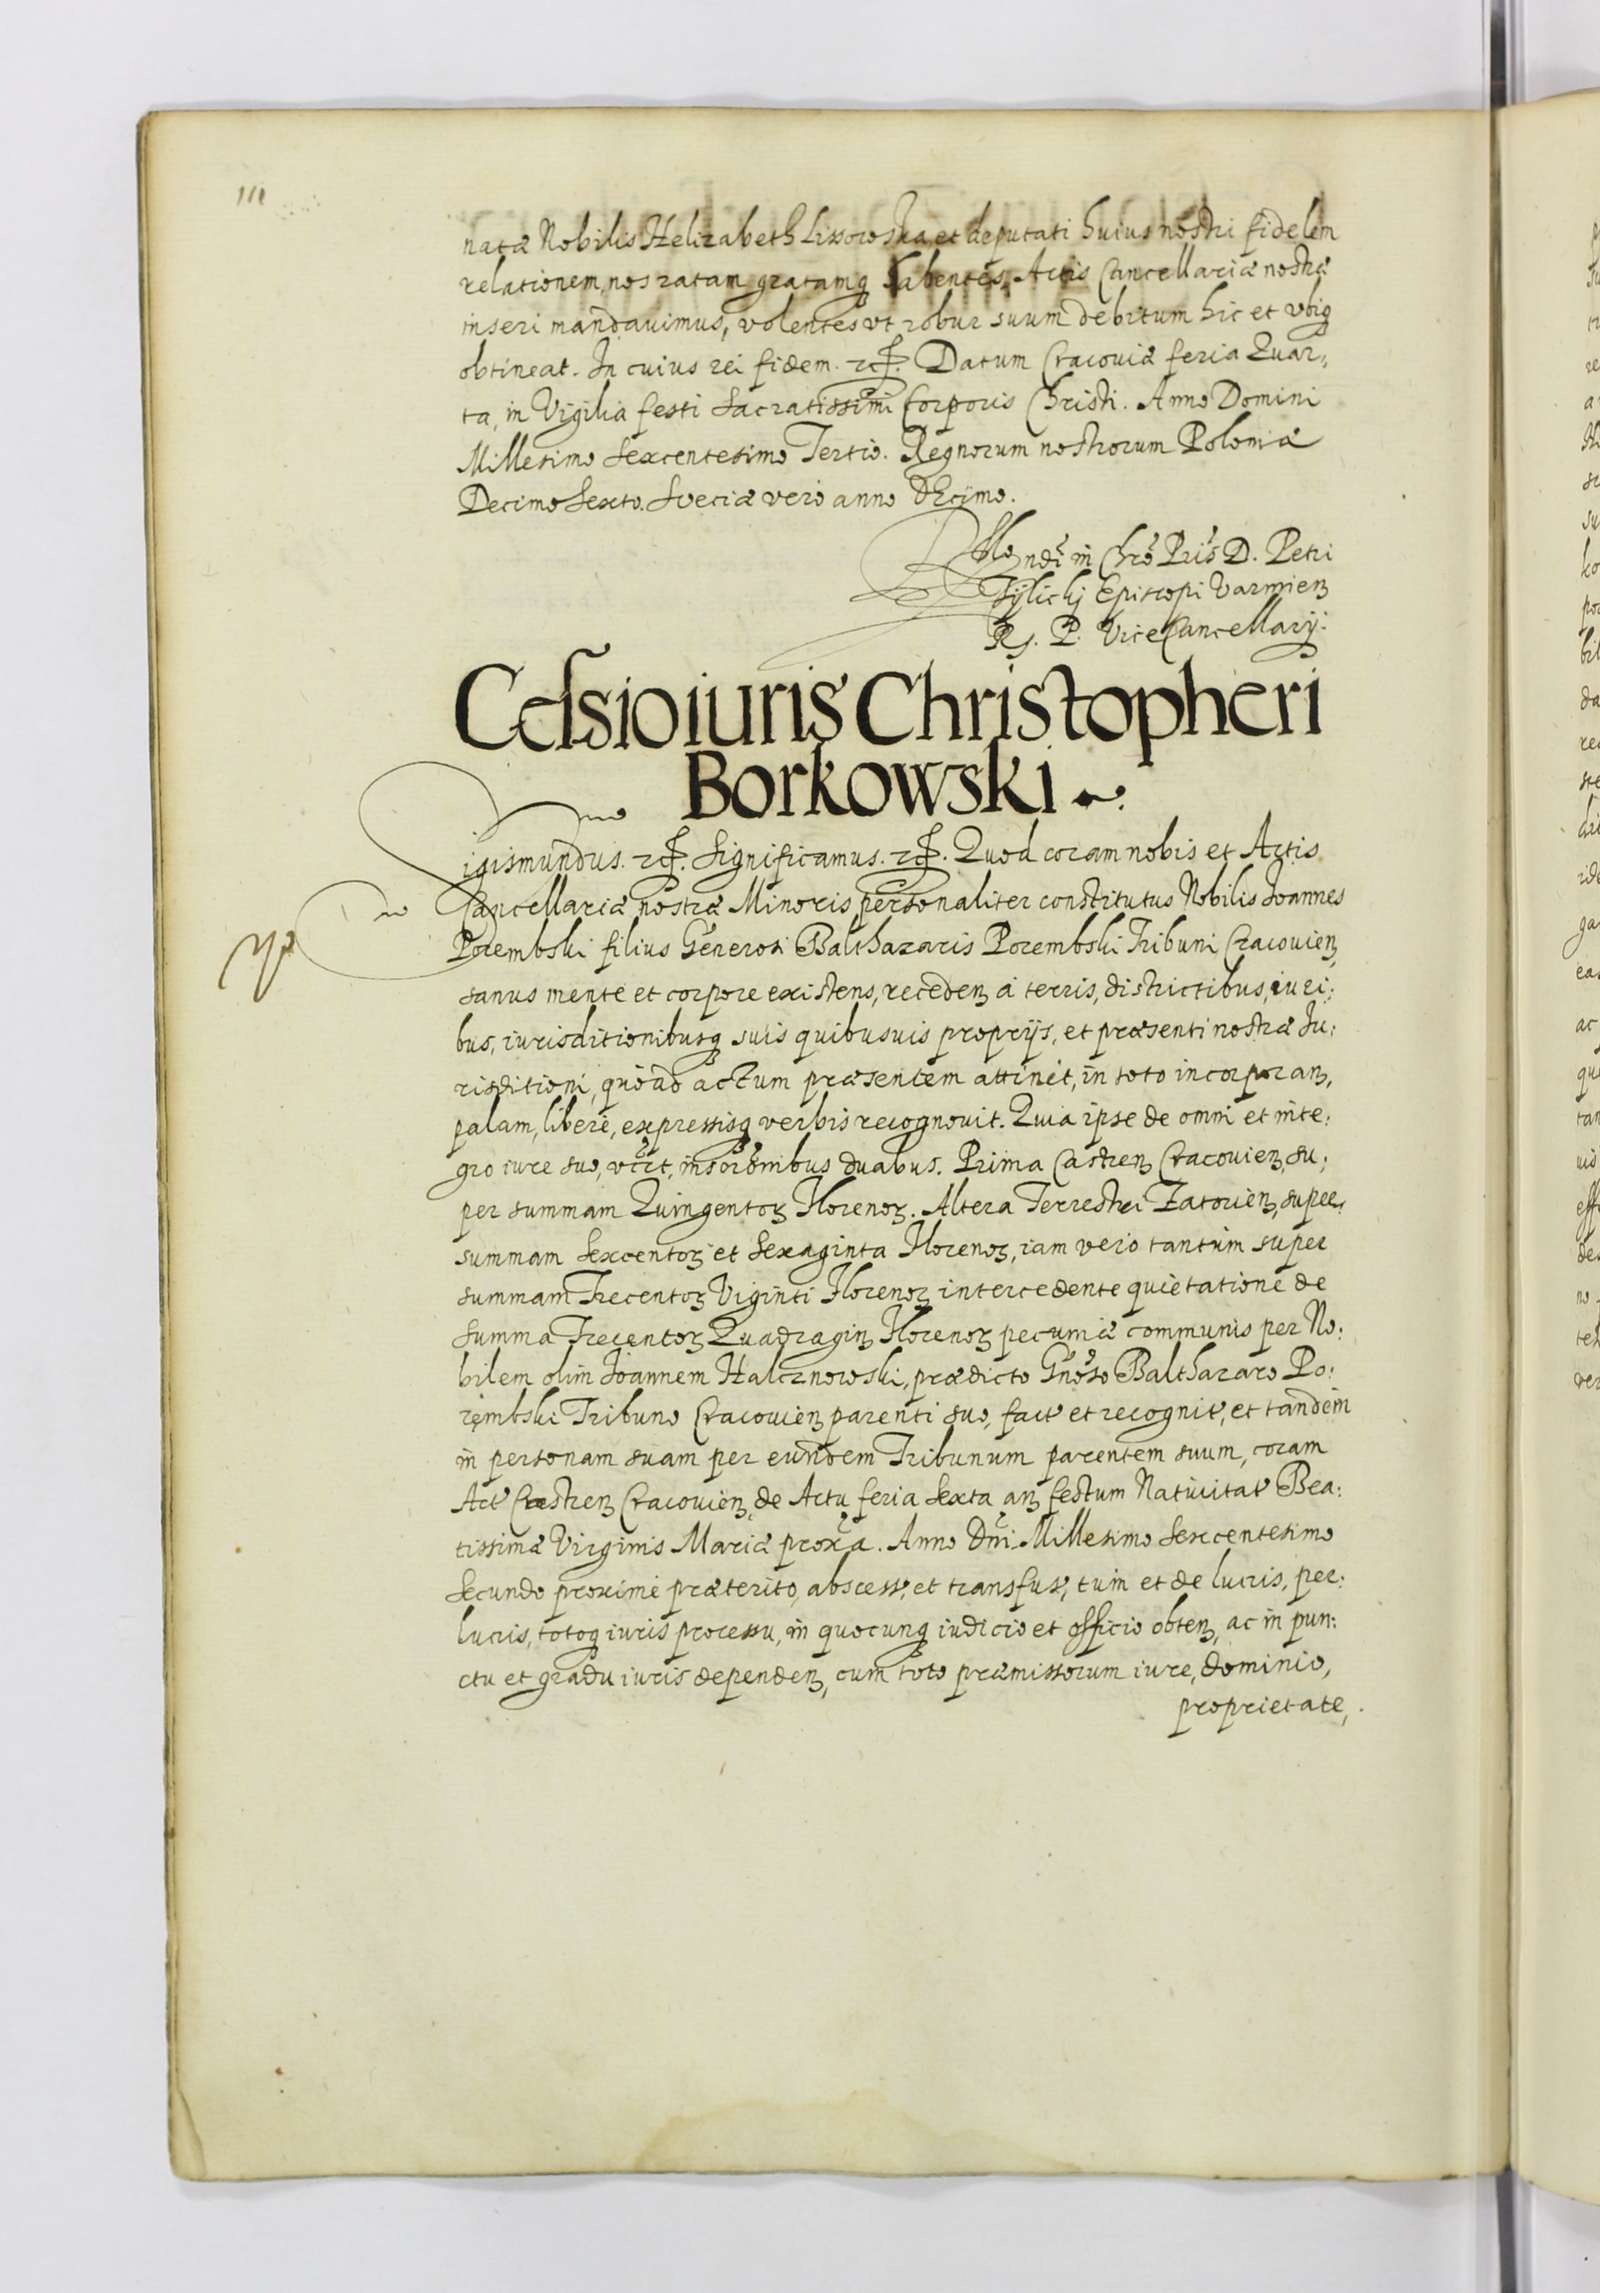 111
natæ Nobilis Helizabeth Lissowska, et deputati huius nostri fidelem
relationem, nos ratam gratamq habentes, Actis Cancellariæ nostræ
inseri mandauimus, volentes vt robur suum debitum hic et vbiq
obtineat. In cuius rei fidem. etc. Datum Cracouiæ feria Quar=
ta, in Vigilia festi Sacratissimi Corporis Christi. Anno Domini
Millesimo Sexcentesimo Tertio. Regnorum nostrorum Poloniæ
Decimo Sexto. Sueciæ vero anno dEcimo.
Rndi in Chro Pris D. Petri
Tylickj Episcopi Varmien
R. P. ViceCancellarij.
Cessio iuris Christopheri
Borkowski
Sigismundus. etc. Significamus. etc. Quod coram nobis et Actis
Cancellariæ nostræ Minoris personaliter constitutus Nobilis Ioannes
Porembski filius Generosi Balthazaris Porembski Tribuni Cracouien,
sanus mente et corpore existens, receden à terris, districtibus, iuri:
bus, iurisditionibusq suis quibusuis proprijs, et præsenti nostræ Iu:
risditioni, quoad actum præsentem attinet, in toto incorporan,
palam, libere, expressisq verbis recognouit. Quia ipse de omni et inte:
gro iure suo, vtit, inscrōnibus duabus. Prima Castren Cracouien, su:
per summam Quingentor Florenor. Altera Terrestri Zatorien, super
summam Sexcentor et Sexaginta Florenor, iam vero tantùm super
summam Trecentor Viginti Florenor intercedente quietatione de
summa Trecentor Quadragin Florenor pecuniæ communis per No:
bilem olim Ioannem Halcznowski, prædicto Gnoso Balthazaro Po:
rembski Tribuno Cracouien parenti suo, fact et recognit, et tandem
in personam suam per eundem Tribunum parentem suum, coram
Act Castren Cracouien, de Actu feria Sexta an festum Natiuitat Bea:
tissimæ Virginis Mariæ proxa. Anno Dni Millesimo Sexcentesimo
Secundo proximè præterito, abscess, et transfus, tum et de lucris, per:
lucris, totoq iuris processu, in quocunq iudicio et officio obten, ac in pun:
ctu et gradu iuris dependen, cum toto præmissorum iure, dominio,
proprietate,